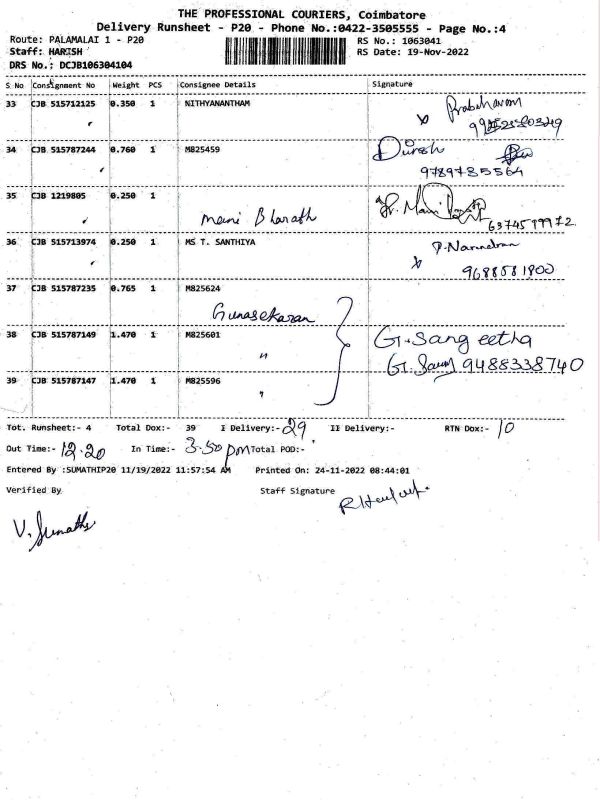 THE PROFESSIONAL COURIERS, Coimbatore
Delivery Runsheet - P20 - Phone No.:0422-3505555 - Page No.:4
Route: PALAMALAI 1 - P20
RS No.: 1063041
Staff: HARISH
RS Date: 19-Nov-2022
DRS No.: DCJB106304104
S No Consignment No Weight PCS Consignee Details Signature
33 CJB 515712125 0.350 1 NITHYANANTHAM
34 CJB 515787244 0.760 1 M825459
9789785564
35 CJB 1219805 0.250 1
Mani Bharath
6374599972
36 CJB 515713974 0.250 1 MS T. SANTHIYA
9688581900
37 CJB 515787235 0.765 1 M825624
Gunasekaran
38 CJB 515787149 1.470 1 M825601 G.Sangeetha
" 9488338740
39 CJB 515787147 1.470 1 M825596
"
Tot. Runsheet:- 4 Total Dox:- 39 I Delivery:- 29 II Delivery:- RTN Dox:- 10
Out Time:- 12.20 In Time:- 3.50 pm Total POD:-
Entered By :SUMATHIP20 11/19/2022 11:57:54 AM Printed On: 24-11-2022 08:44:01
Verified By Staff Signature
V. Sumathi